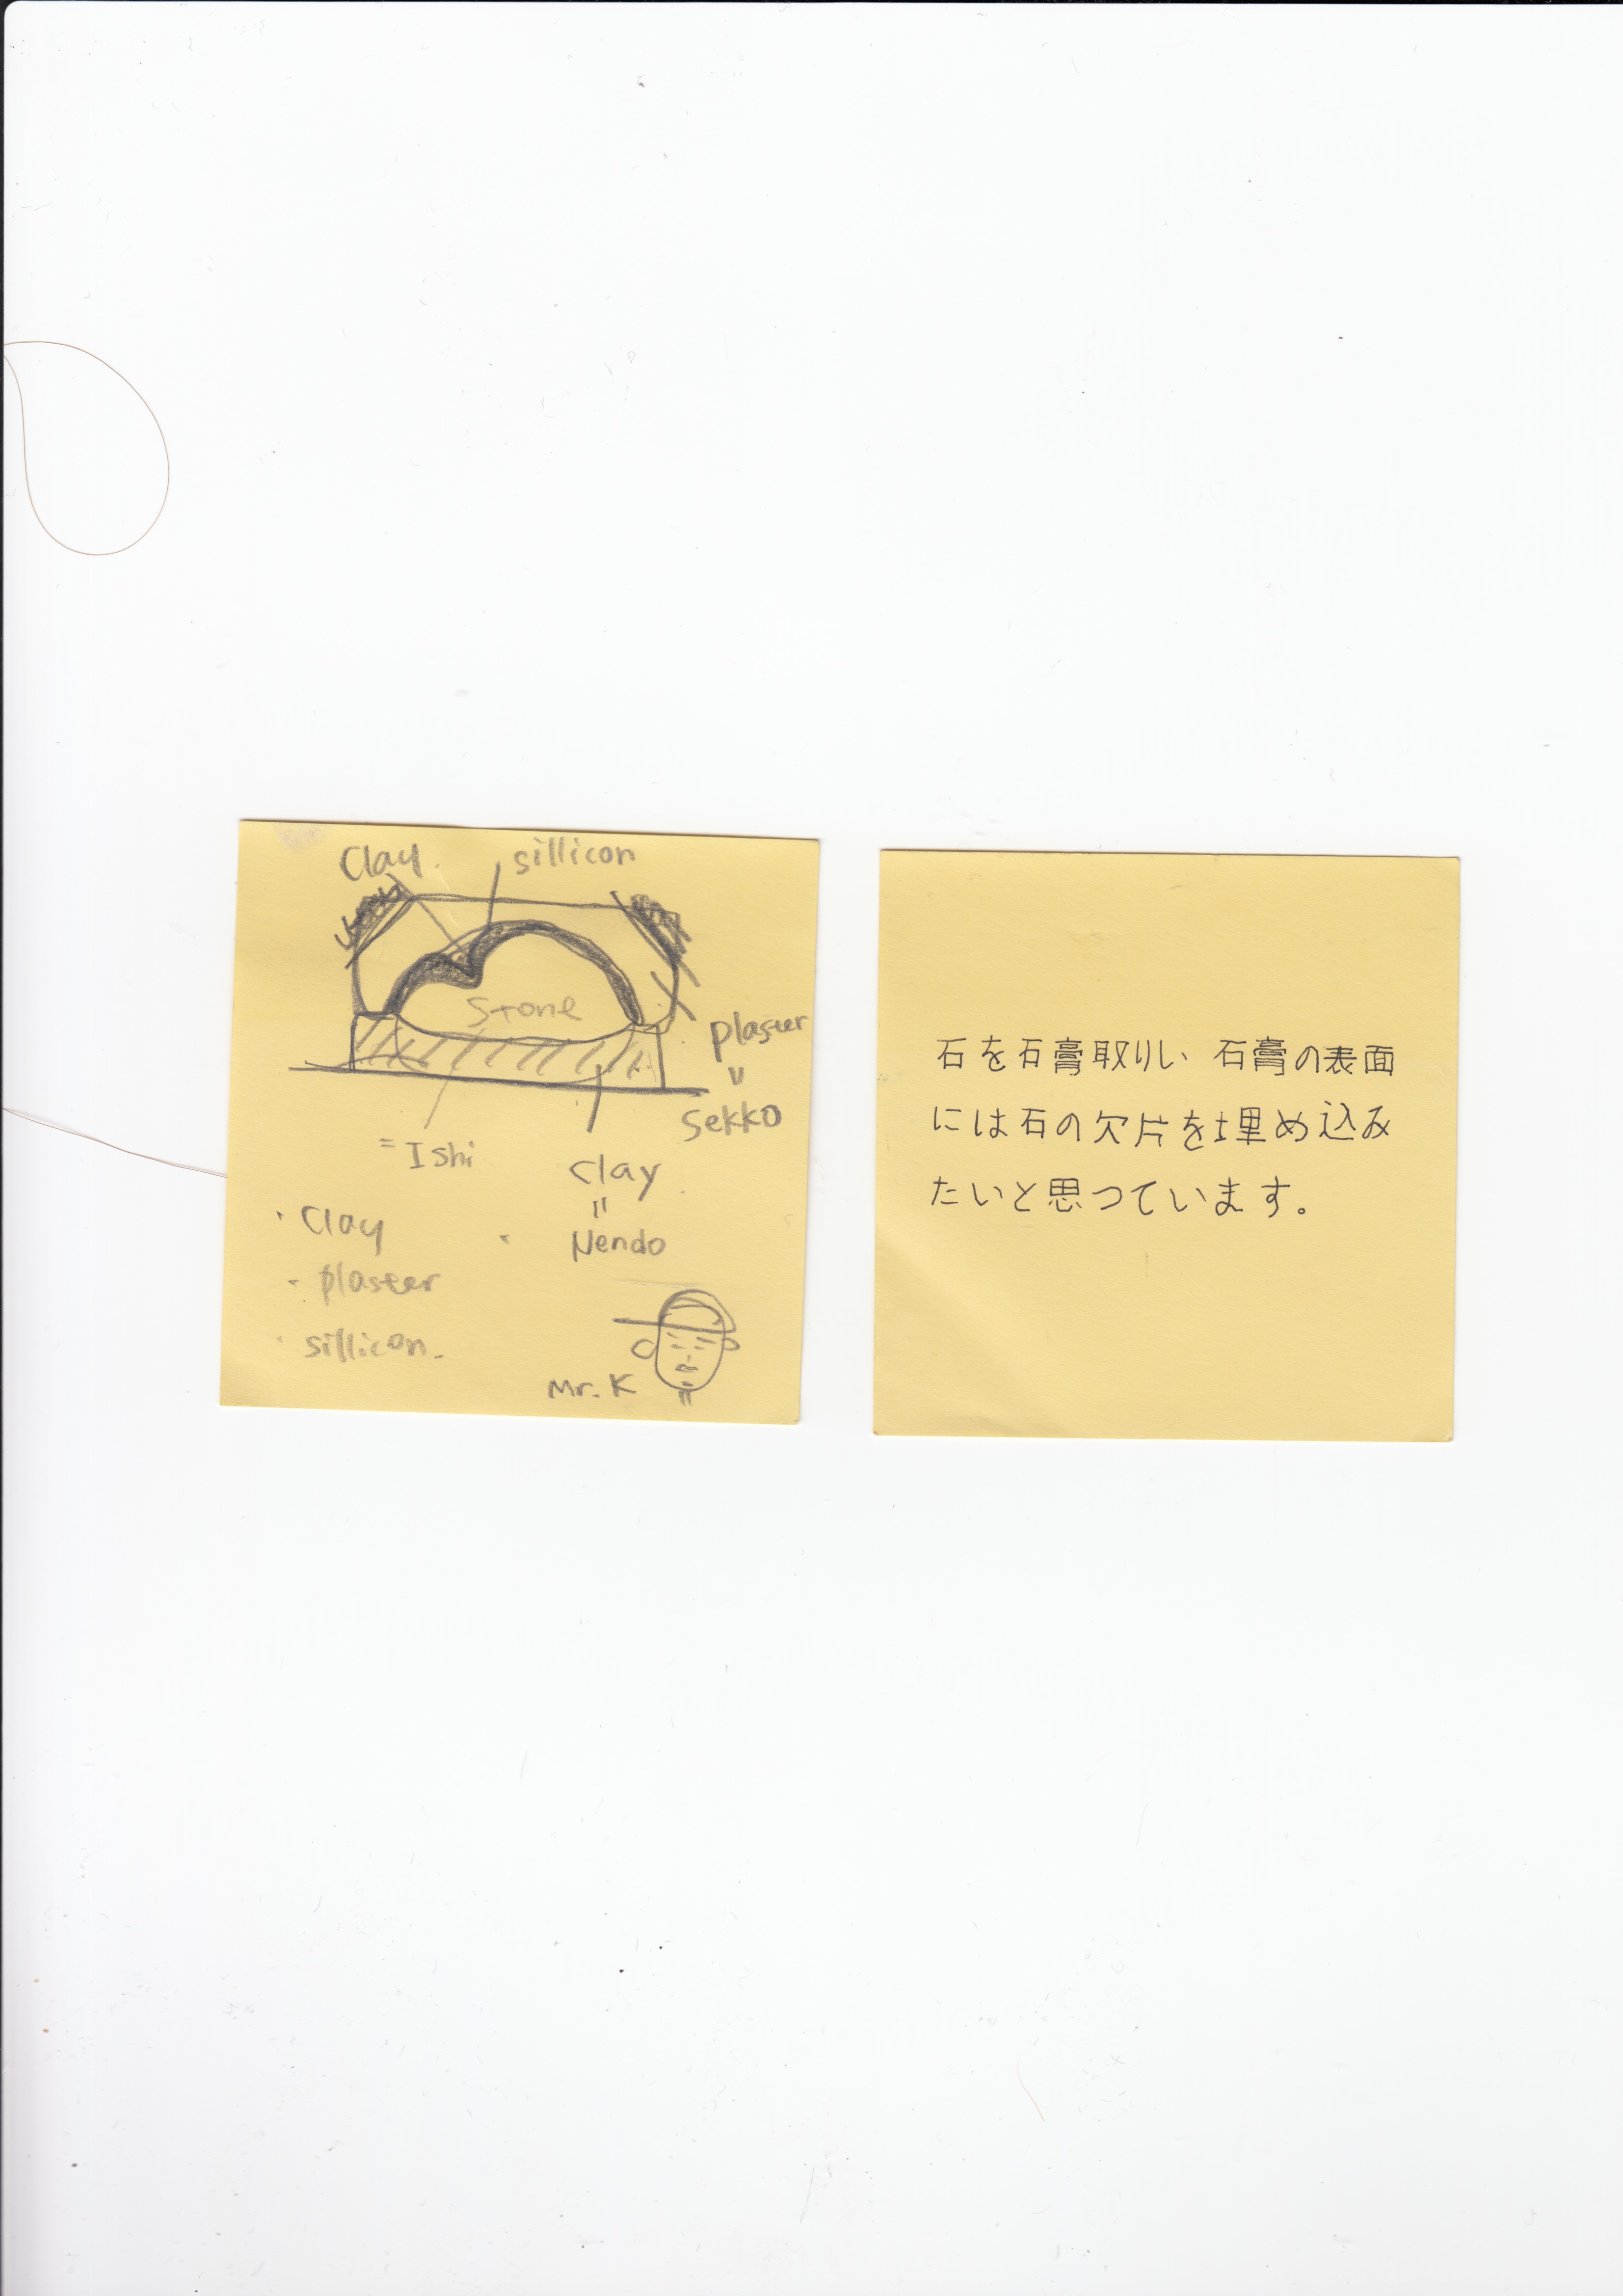 Clay.
sillicon
Stone
plaster
=
sekko
= Ishi
clay
=
Nendo
・clay
・plaster
・sillicon.
Mr. K
石を石膏取りしい 石膏の表面
には石の欠片を埋め込み
たいと思っています。